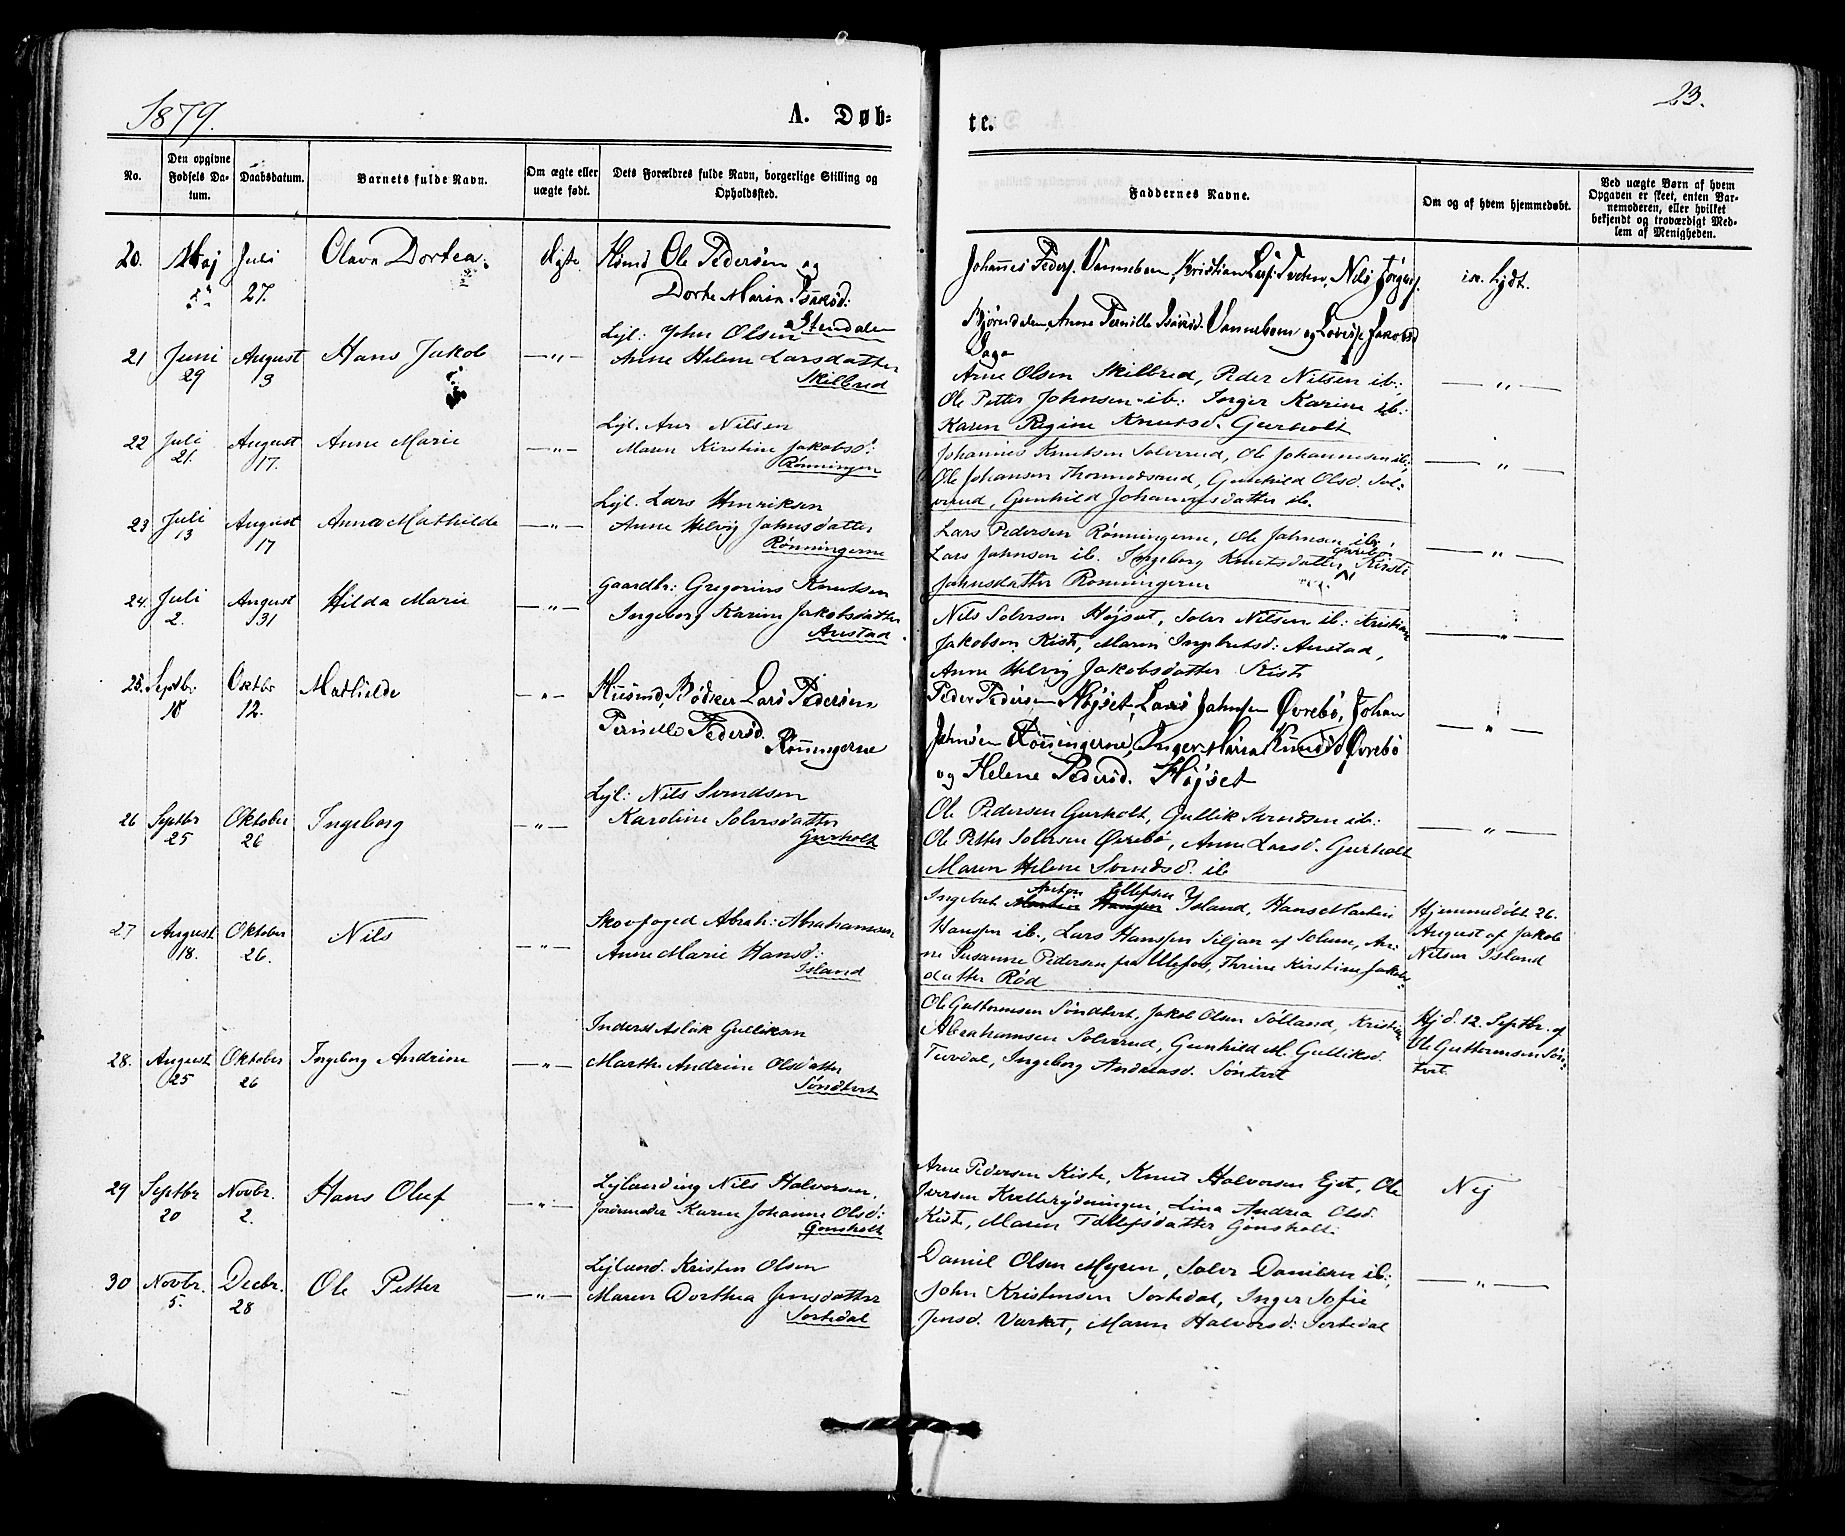 1879.
A. Døb-
te.
23.
No.
Den opgivne Fødsels Da-tum.
Daabsdatum.
Barnets fulde Navn.
Om ægte eller uægte født.
Dets Forældres fulde Navn, borgerlige Stilling og Opholdssted.
Faddernes Navne.
Om og af hvem hjemmedøbt.
Ved uægte Børn af hvem Opgaven er skeet, enten Bar-nemoderen, eller hvilket bekjendt og troværdigt Med-lem af Menigheden.
20. Maj Juli 27. Olava Dortea. Ægte
Hsmd Ole Pedersen og
Dorte Maria Isaksd:
Stendalen
Johannes Peders. Vannebom, Kristian Larss. Tveten, Nils Jørgens.
Bjørndalen, Anne Pernille Isaksd. Vannebom og Lovise Jakobsd
Daga
ik. hjdt.
21 Juni 29 August 3 Hans Jakob — „ —
Lyl: John Olsen
Anne Helene Larsdatter
Skilbred
Arne Olsen Skilbred, Peder Nilsen ib:
Ole Petter Johnsen ib: Inger Karine ib:
Karen Regine Knutsd. Gurholt
— „ —
22 Juli 21. August 17. Anne Marie — „ —
Lyl. Anr Nilsen
Maren Kirstine Jakobsd:
Rønningen
Johannes Knutsen Solverud, Ole Johannesen ib:,
Ole Johansen Thormodsrud, Gunhild Olsd. Sol-
verud, Gunhild Johannesdatter ib.
— „ —
23 Juli 13 August 17 Anna Mathilde — „ —
Lyl. Lars Henriksen
Anne Helvig Johnsdatter
Rønningerne
Lars Pedersen Rønningerne, Ole Johnsen ib,
Lars Johnsen ib. Ingeborg Knutsdatter Kirsti
Johnsdatter Rønningerne
— „ —
24. Juli 2. August 31 Hilda Marie — „ —
Gaardbr: Gregorius Knutsen
Ingeborg Karine Jakobsdatter
Anstad.
Nils Solvesen Højset, Solve Nilsen ib: Kristian
Jakobsen Kist, Maren Ingebretsd: Anstad,
Anne Helvig Jakobsdatter Kist
— „ —
25. Septbr 10 Oktbr 12. Mathilde — „ —
Husmd, Bødker Lars Pedersen
Pernille Pedersd.
Rønningerne
Peder Pedersen Højset, Lars Johnsen Øvrebø, Johan
Johnsen Rønningerne, Inger Maria Knudsd Øvrebø
og Helene Pedersd. Højset
— „ —
26 Septbr 25 Oktober 26 Ingeborg — „ —
Lyl: Nils Svendsen
Karoline Solvesdatter
Gurholt
Ole Pedersen Gurholt, Gullik Svendsen ib:
Ole Petter Solvesen Øvrebø, Anne Larsd. Gurholt
Maren Helene Svendsd. ib
— „ —
27 August 18. Oktober 26. Nils — „ —
Skovfoged Abrah: Abrahamsen
Anne Marie Hansd:
Island
Anton Ellefsen
Ingebret Martin Hansen Island, Hans Martin
Hansen ib., Lars Hansen Siljan af Solum, An-
ne Susanne Pedersen fra Ulefos, Thrine Kirstine Jakobs-
datter Rød
Hjemmedøbt 26.
August af Jakob
Nilsen Island
28. August 25 Oktober 26 Ingeborg Andrine — „ —
Inderst Aslak Gulliksen
Marthe Andrine Olsdatter
Søndtvet
Ole Guttormsen Søndtvet, Jakob Olsen Solland, Kristian
Abrahamsen Solverud, Gunhild M. Gulliksd.
Tuvdal, Ingeborg Andreasd. Søntvet
Hjd. 12. Septbr. af
Ole Guttormsen Søn-
tvet.
29 Septbr 20 Novbr. 2. Hans Oluf — „ —
Lejlænding Nils Halvorsen.
Jordemoder Karen Johanne Olsd:
Gonsholt
Arne Pedersen Kiste, Knut Halvorsen Eget, Ole
Iversen Kvellerydningen, Lina Andrea Olsd.
Kist, Maren Tollefsdatter Gonsholt.
Nej
30 Novbr. 5. Decbr. 28 Ole Petter — „ —
Lejlænd. Kristen Olsen
Maren Dorthea Jensdatter
Sortedal
Daniel Olsen Myren, Solve Danielsen ib:,
John Kristensen Sortedal, Inger Sofie
Jensd. Værket, Maren Halvorsd: Sortedal
— „ —